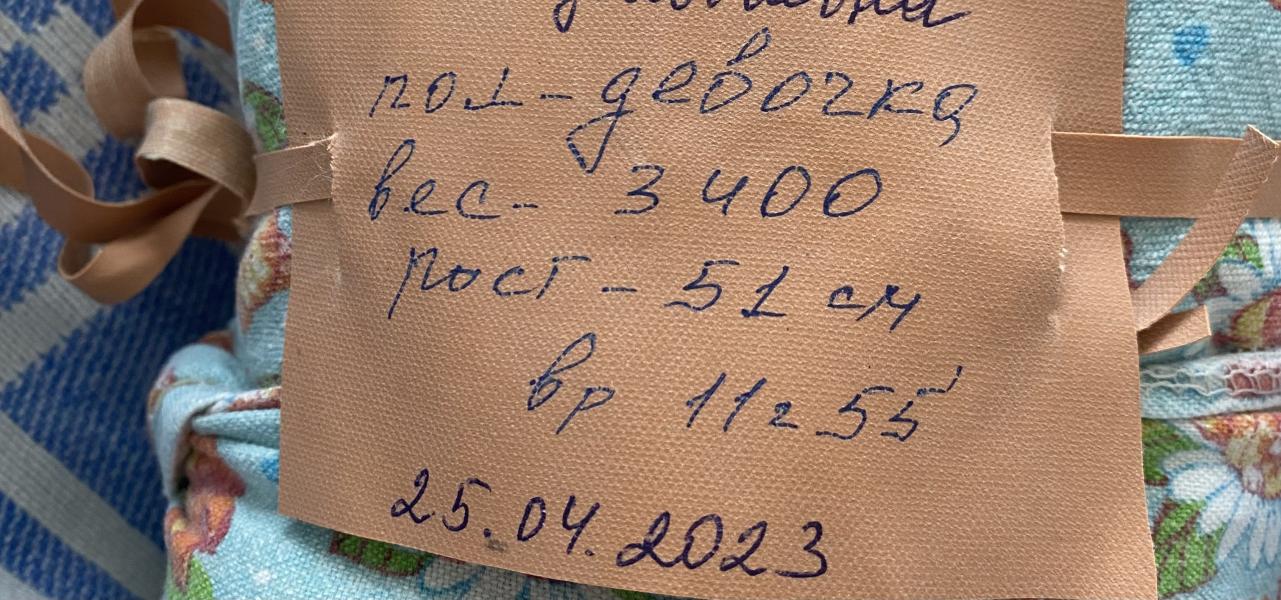 пол - девочка
вес - 3400
рост - 51 см
вр 11ч 55'
25.04.2023